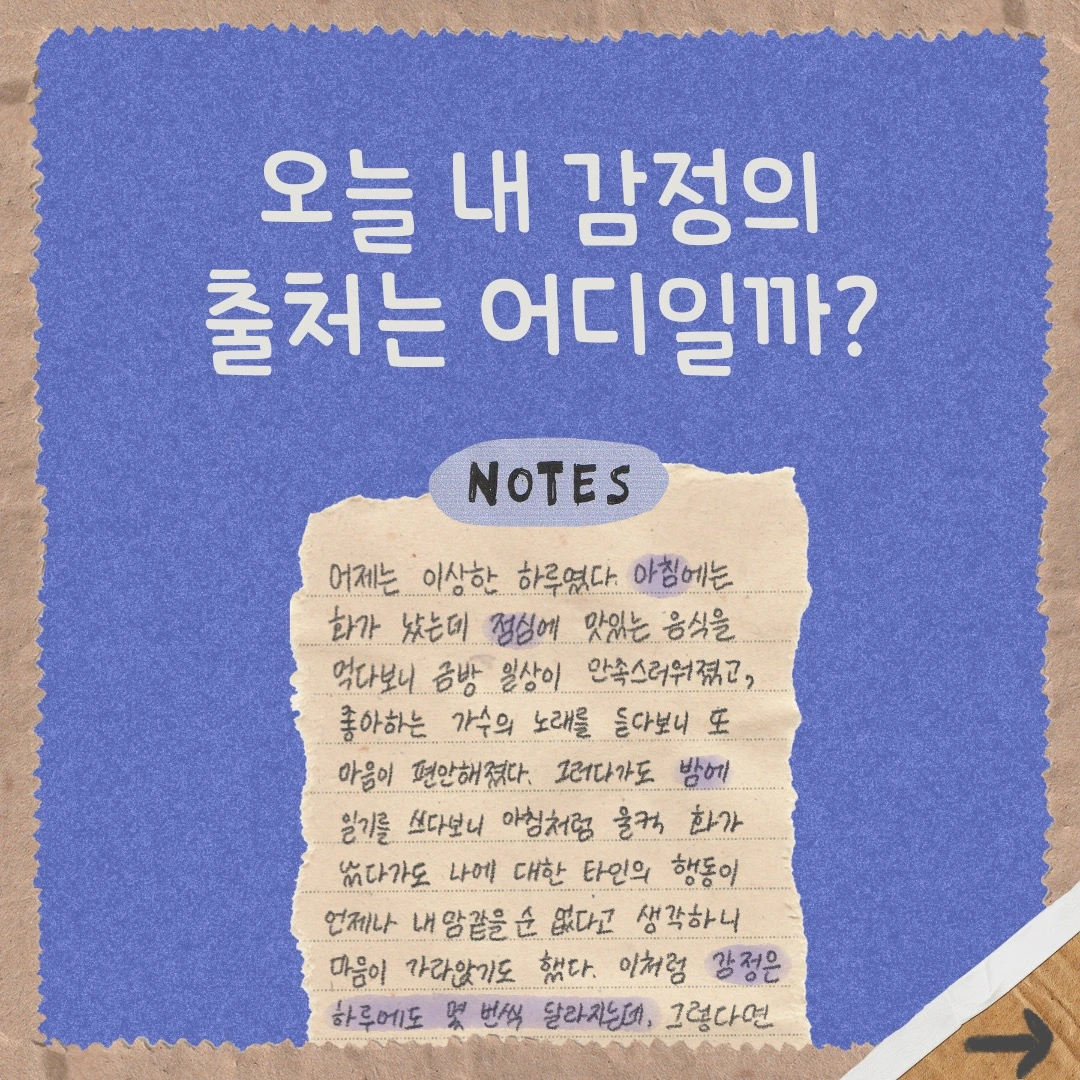 오늘 내 감정의
출처는 어디일까?
NOTES
어제는 이상한 하루였다. 아침에는
화가 났는데 점심에 맛있는 음식을
먹다보니 금방 일상이 만족스러워졌고,
좋아하는 가수의 노래를 듣다보니 또
마음이 편안해졌다. 그러다가도 밤에
일기를 쓰다보니 아침처럼 울컥 화가
났다가도 나에 대한 타인의 행동이
언제나 내맘같을 순 없다고 생각하니
마음이 가라앉기도 했다. 이처럼 감정은
하루에도 몇 번씩 달라지는데, 그렇다면